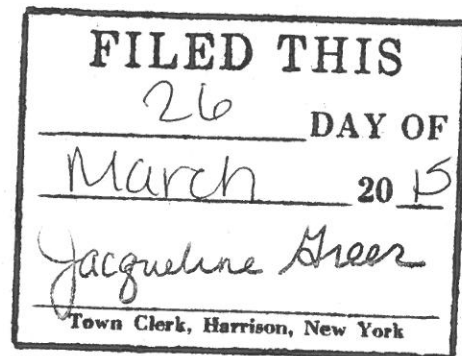 FILED THIS
26 DAY OF
March 20 15
Jacqueline Greer
Town Clerk, Harrison, New York